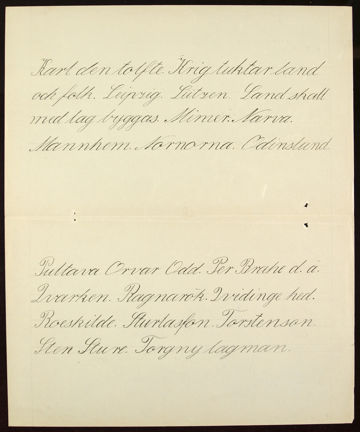 Karl den tolfte. Krig luktar land
och folk. Leipzig. Lützen. Land skall
med lag byggas. Minier. Narva.
Mannhem. Nornorna. Odinslund.
Pultava. Orvar Odd. Per Brahe d. ä.
Qvarken. Ragnarök. Qvidinge hed.
Roeskilde. Sturlasson. Torstenson.
Sten Sture. Torgny lagman.